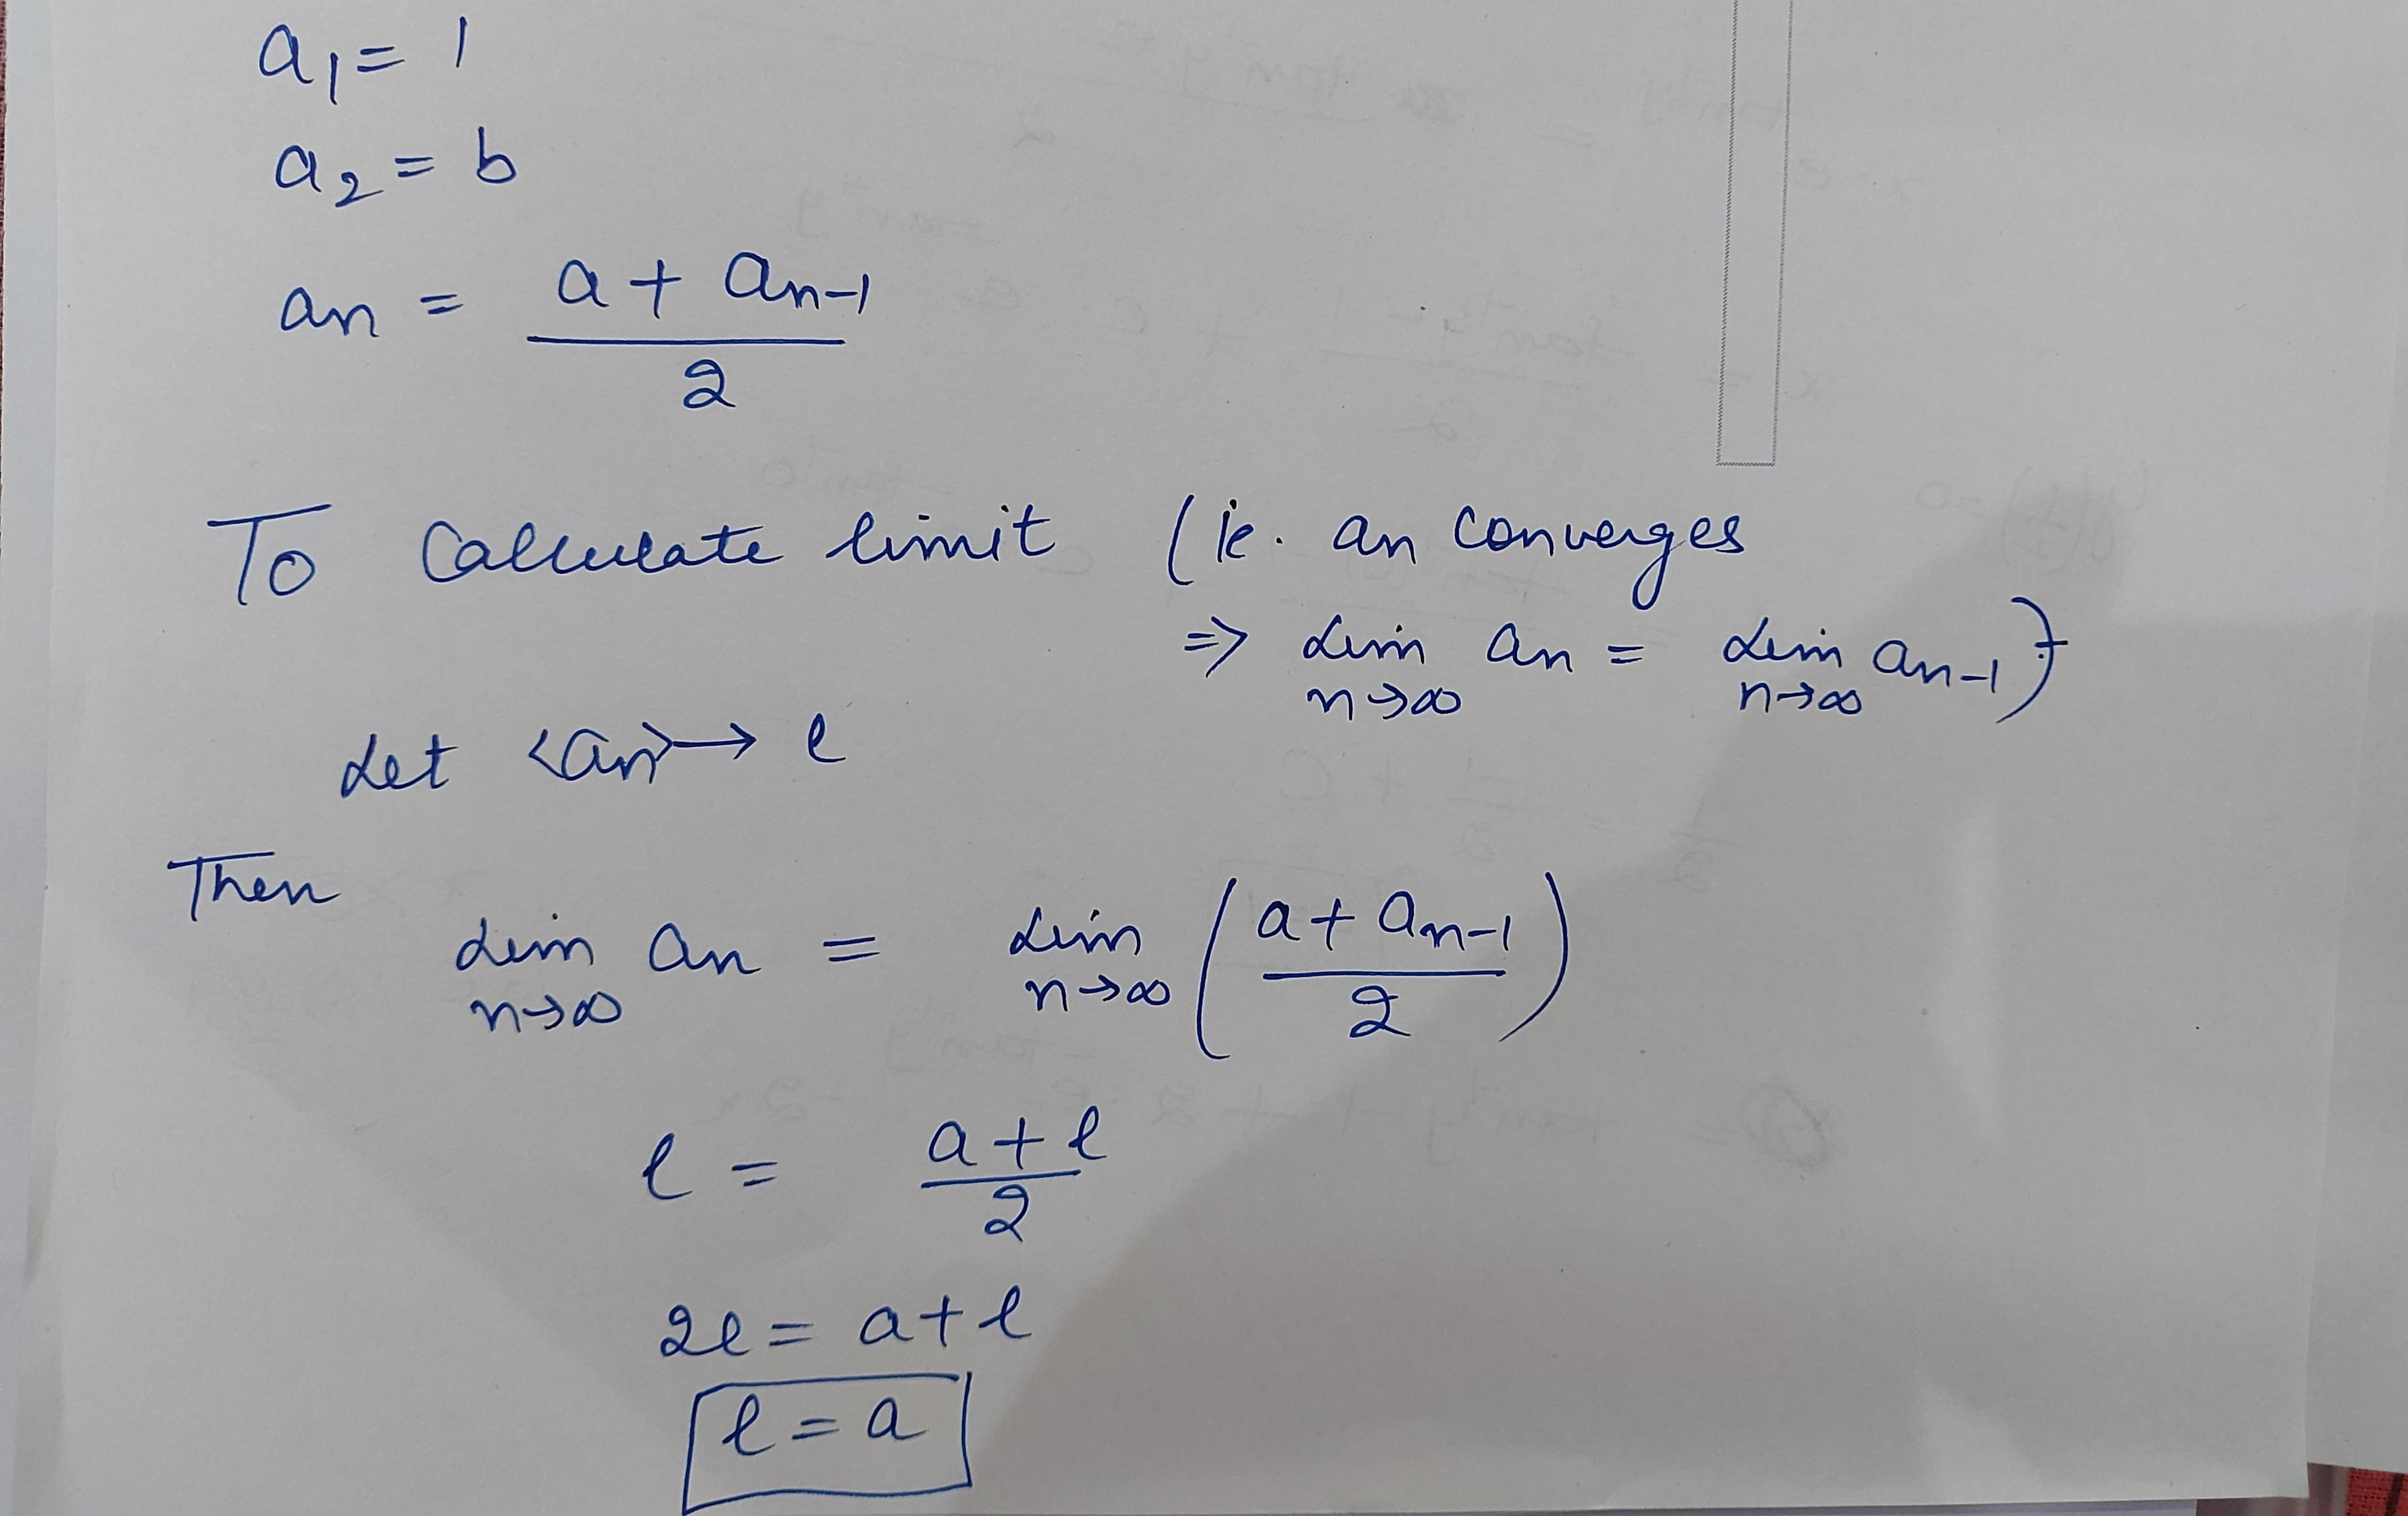 a₁ = 1
a₂ = b
aₙ = (a + aₙ₋₁) / 2
To Calculate limit (ie. aₙ converges
⇒ Lim n→∞ aₙ = Lim n→∞ aₙ₋₁).
Let <aₙ> → l
Then
Lim n→∞ aₙ = Lim n→∞ ((a + aₙ₋₁) / 2)
l = (a + l) / 2
2l = a + l
l = a